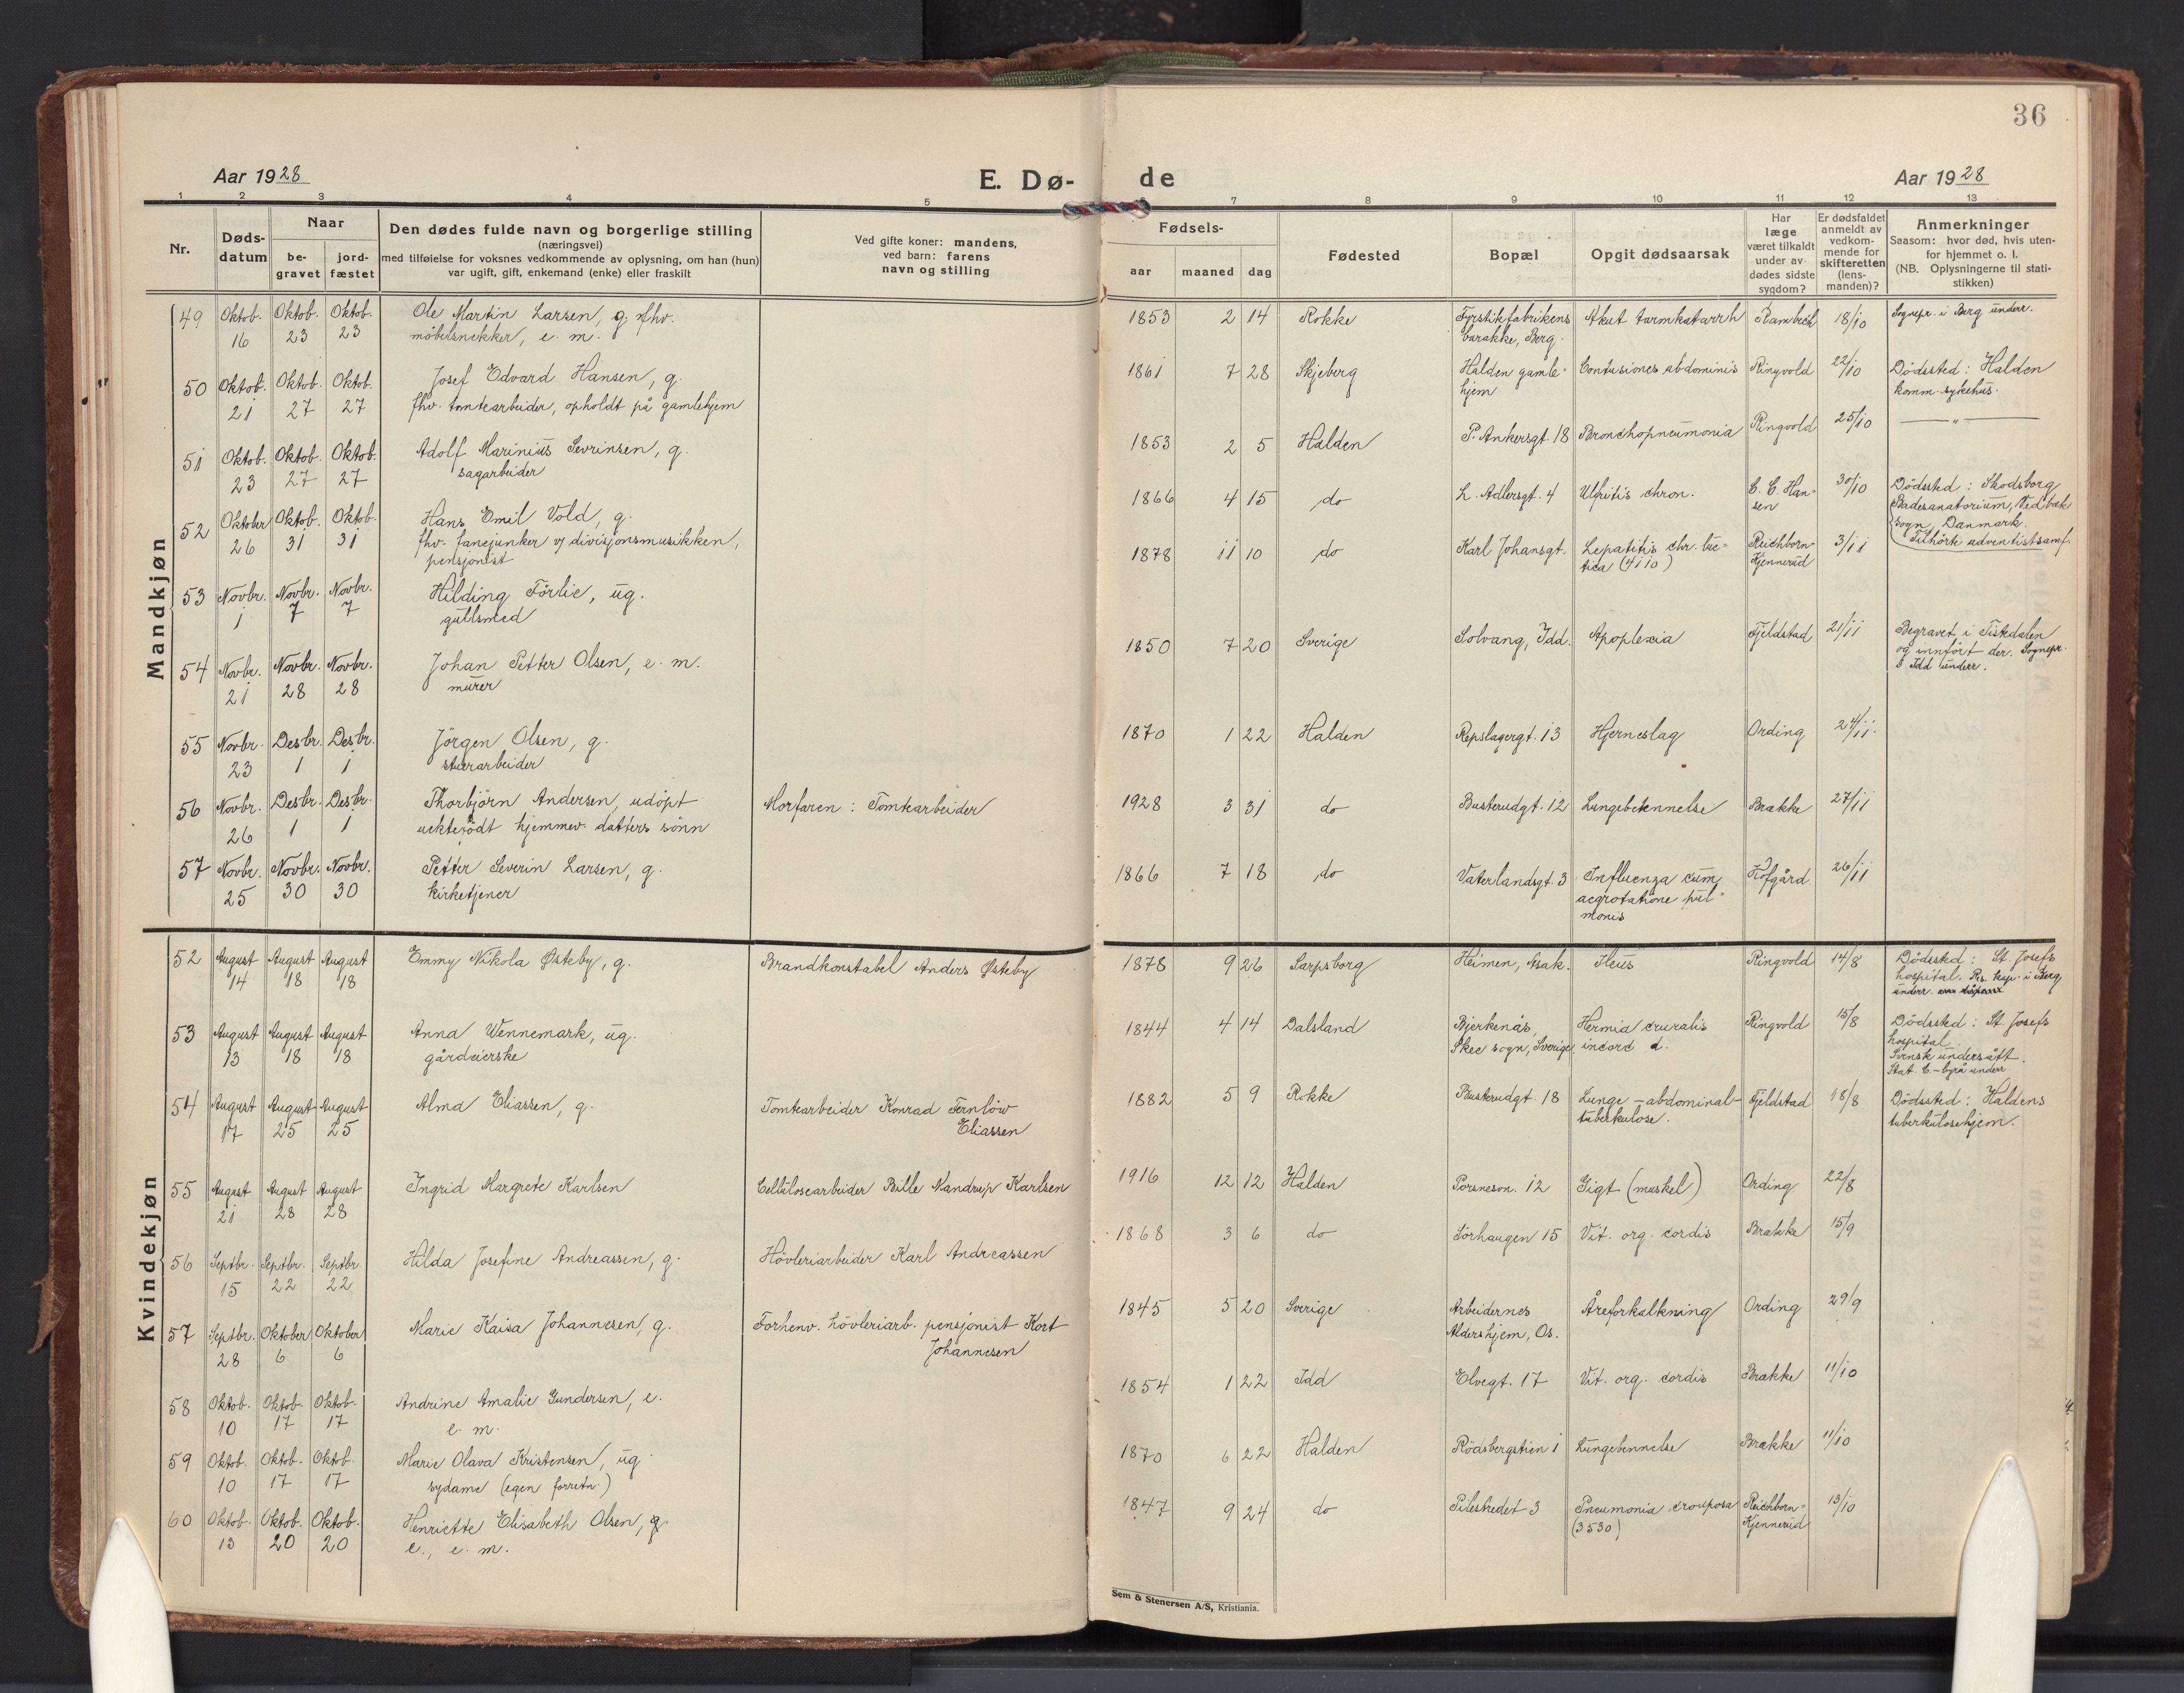 36
Aar 1928 E. Dø- de Aar 1928
1 2 3 4 5 7 8 9 10 11 12 13
Nr.
Døds-
datum
Naar
be-
gravet
jord-
fæstet
Den dødes fulde navn og borgerlige stilling
(næringsvei)
med tilføielse for voksnes vedkommende av oplysning, om han (hun)
var ugift, gift, enkemand (enke) eller fraskilt
Ved gifte koner: mandens,
ved barn: farens
navn og stilling
Fødsels-
aar maaned dag
Fødested
Bopæl
Opgit dødsaarsak
Har
læge
været tilkaldt
under av-
dødes sidste
sygdom?
Er dødsfaldet
anmeldt av
vedkom-
mende for
skifteretten
(lens-
manden)?
Anmerkninger
Saasom: hvor død, hvis uten-
for hjemmet o. l.
(NB. Oplysningerne til stati-
stikken)
Mandkjøn
49 Oktob. 16 Oktob. 23 Oktob. 23 Ole Martin Larsen, g. fhv.
møbelsnekker, e. m.
1853 2 14 Rokke Fyrstikfabrikens
barakke, Berg. Akut tarmkatarrh Rambech 18/10 Sognepr. i Berg underr.
50 Oktob. 21 Oktob. 27 Oktob. 27 Josef Edvard Hansen, g.
fhv. tomtearbeider, opholdt på gamlehjem
1861 7 28 Skjeberg Halden gamle-
hjem Contusiones abdominis Ringvold 22/10 Dödssted: Halden
komm. sykehus.
51 Oktob. 23 Oktob. 27 Oktob. 27 Adolf Marinius Sevrinsen, g.
sagarbeider
1853 2 5 Halden P. Ankersgt. 18 Bronchopneumonia Ringvold 25/10 — " —
52 Oktober 26 Oktob. 31 Oktob. 31 Hans Emil Vold, g.
fhv. fanejunker v/ divisjonsmusikken,
pensjonist
1866 4 15 do L. Adlersgt. 4 chron. C. C. Han-
sen 30/10 Dödssted: Skodsborg
Badesanatorium, Vedbæk
sogn, Danmark.
Tilhörte adventistsamf.
53 Novbr. 1 Novbr. 7 Novbr. 7 Hilding Förlie, ug.
gullsmed
1878 11 10 do Karl Johansgt. chr. lue-
tica (4110) Reichborn-
Kjennerud 3/11
54 Novbr. 21 Novbr. 28 Novbr. 28 Johan Petter Olsen, e. m.
murer
1850 7 20 Sverige Solvang, Idd. Apoplexia Fjeldstad 21/11 Begravet i Tistedalen
og innfört der. Sognepr.
i Idd underr.
55 Novbr. 23 Desbr. 1 Desbr. 1 Jörgen Olsen, g.
stuerarbeider
1870 1 22 Halden Repslagergt. 13 Hjerneslag Ording 24/11.
56 Novbr. 26 Desbr. 1 Desbr. 1 Thorbjörn Andersen, udöpt
uektefödt hjemmev. datters sönn
Morfaren: Tomtearbeider
1928 3 31 do Busterudgt. 12 Lungebetennelse Brække 27/11
57 Novbr. 25 Novbr. 30 Novbr. 30 Petter Severin Larsen, g.
kirketjener
1866 7 18 do Vaterlandsgt. 3 Influenza cum
aegrotatione pul-
monis Hofgård 26/11
Kvindekjøn
52 August 14 August 18 August 18 Emmy Nikola Østeby, g.
Brandkonstabel Anders Østeby
1878 9 26 Sarpsborg Heimen, Asak. Ileus Ringvold 14/8 Dödssted: St. Josefs
hospital. Res. kap. i Berg
underr.
53 August 13 August 18 August 18 Anna Wennemark, ug.
gårdeierske
1844 4 14 Dalsland Bjerkenås,
Skee sogn, Sverige. Hernia cruralis
incarc d. Ringvold 15/8 Dödssted: St. Josefs
hospital.
Svensk undersått.
Stat. C-byrå underr.
54 August 17 August 25 August 25 Alma Eliassen, g.
Tomtearbeider Konrad Fernlöw
Eliassen
1882 5 9 Rokke Busterudgt. 18 Lunge-abdominal-
tuberkulose. Fjeldstad 18/8 Dödssted: Haldens
tuberkulosehjem.
55 August 21 August 28 August 28 Ingrid Margrete Karlsen
Cellulosearbeider Bille Nandrup Karlsen
1916 12 12 Halden Porsnesvn. 12 Gigt (muskel) Ording 22/8
56 Septbr. 15 Septbr. 22 Septbr. 22 Hilda Josefine Andreassen, g.
Hövleriarbeider Karl Andreassen
1868 3 6 do Sörhaugen 15 Vit. org. cordis Brække 15/9
57 Septbr. 28 Oktober 6 Oktober 6 Marie Kaisa Johannesen, g.
Forhenv. hövleriarb. pensjonist Kort
Johannesen
1845 5 20 Sverige Arbeidernes
Aldershjem, Os. Åreforkalkning Ording 29/9
58 Oktob. 10 Oktob. 17 Oktob. 17 Andrine Amalie Gundersen, e.
e. m.
1854 1 22 Idd Elvegt. 17 Vit. org. cordis Brække 11/10
59 Oktob. 10 Oktob. 17 Oktob. 17 Marie Olava Kristensen, ug.
sydame (egen forretn.)
1870 6 22 Halden Rödsbergstien 1 Lungebennelse Brække 11/10
60 Oktob. 13 Oktob. 20 Oktob. 20 Henriette Elisabeth Olsen, g.
e., e. m.
1847 9 24 do Pilestredet 3 Pneumonia crouposa
(3530) Reichborn-
Kjennerud 13/10
Sem & Stenersen A/S, Kristiania.